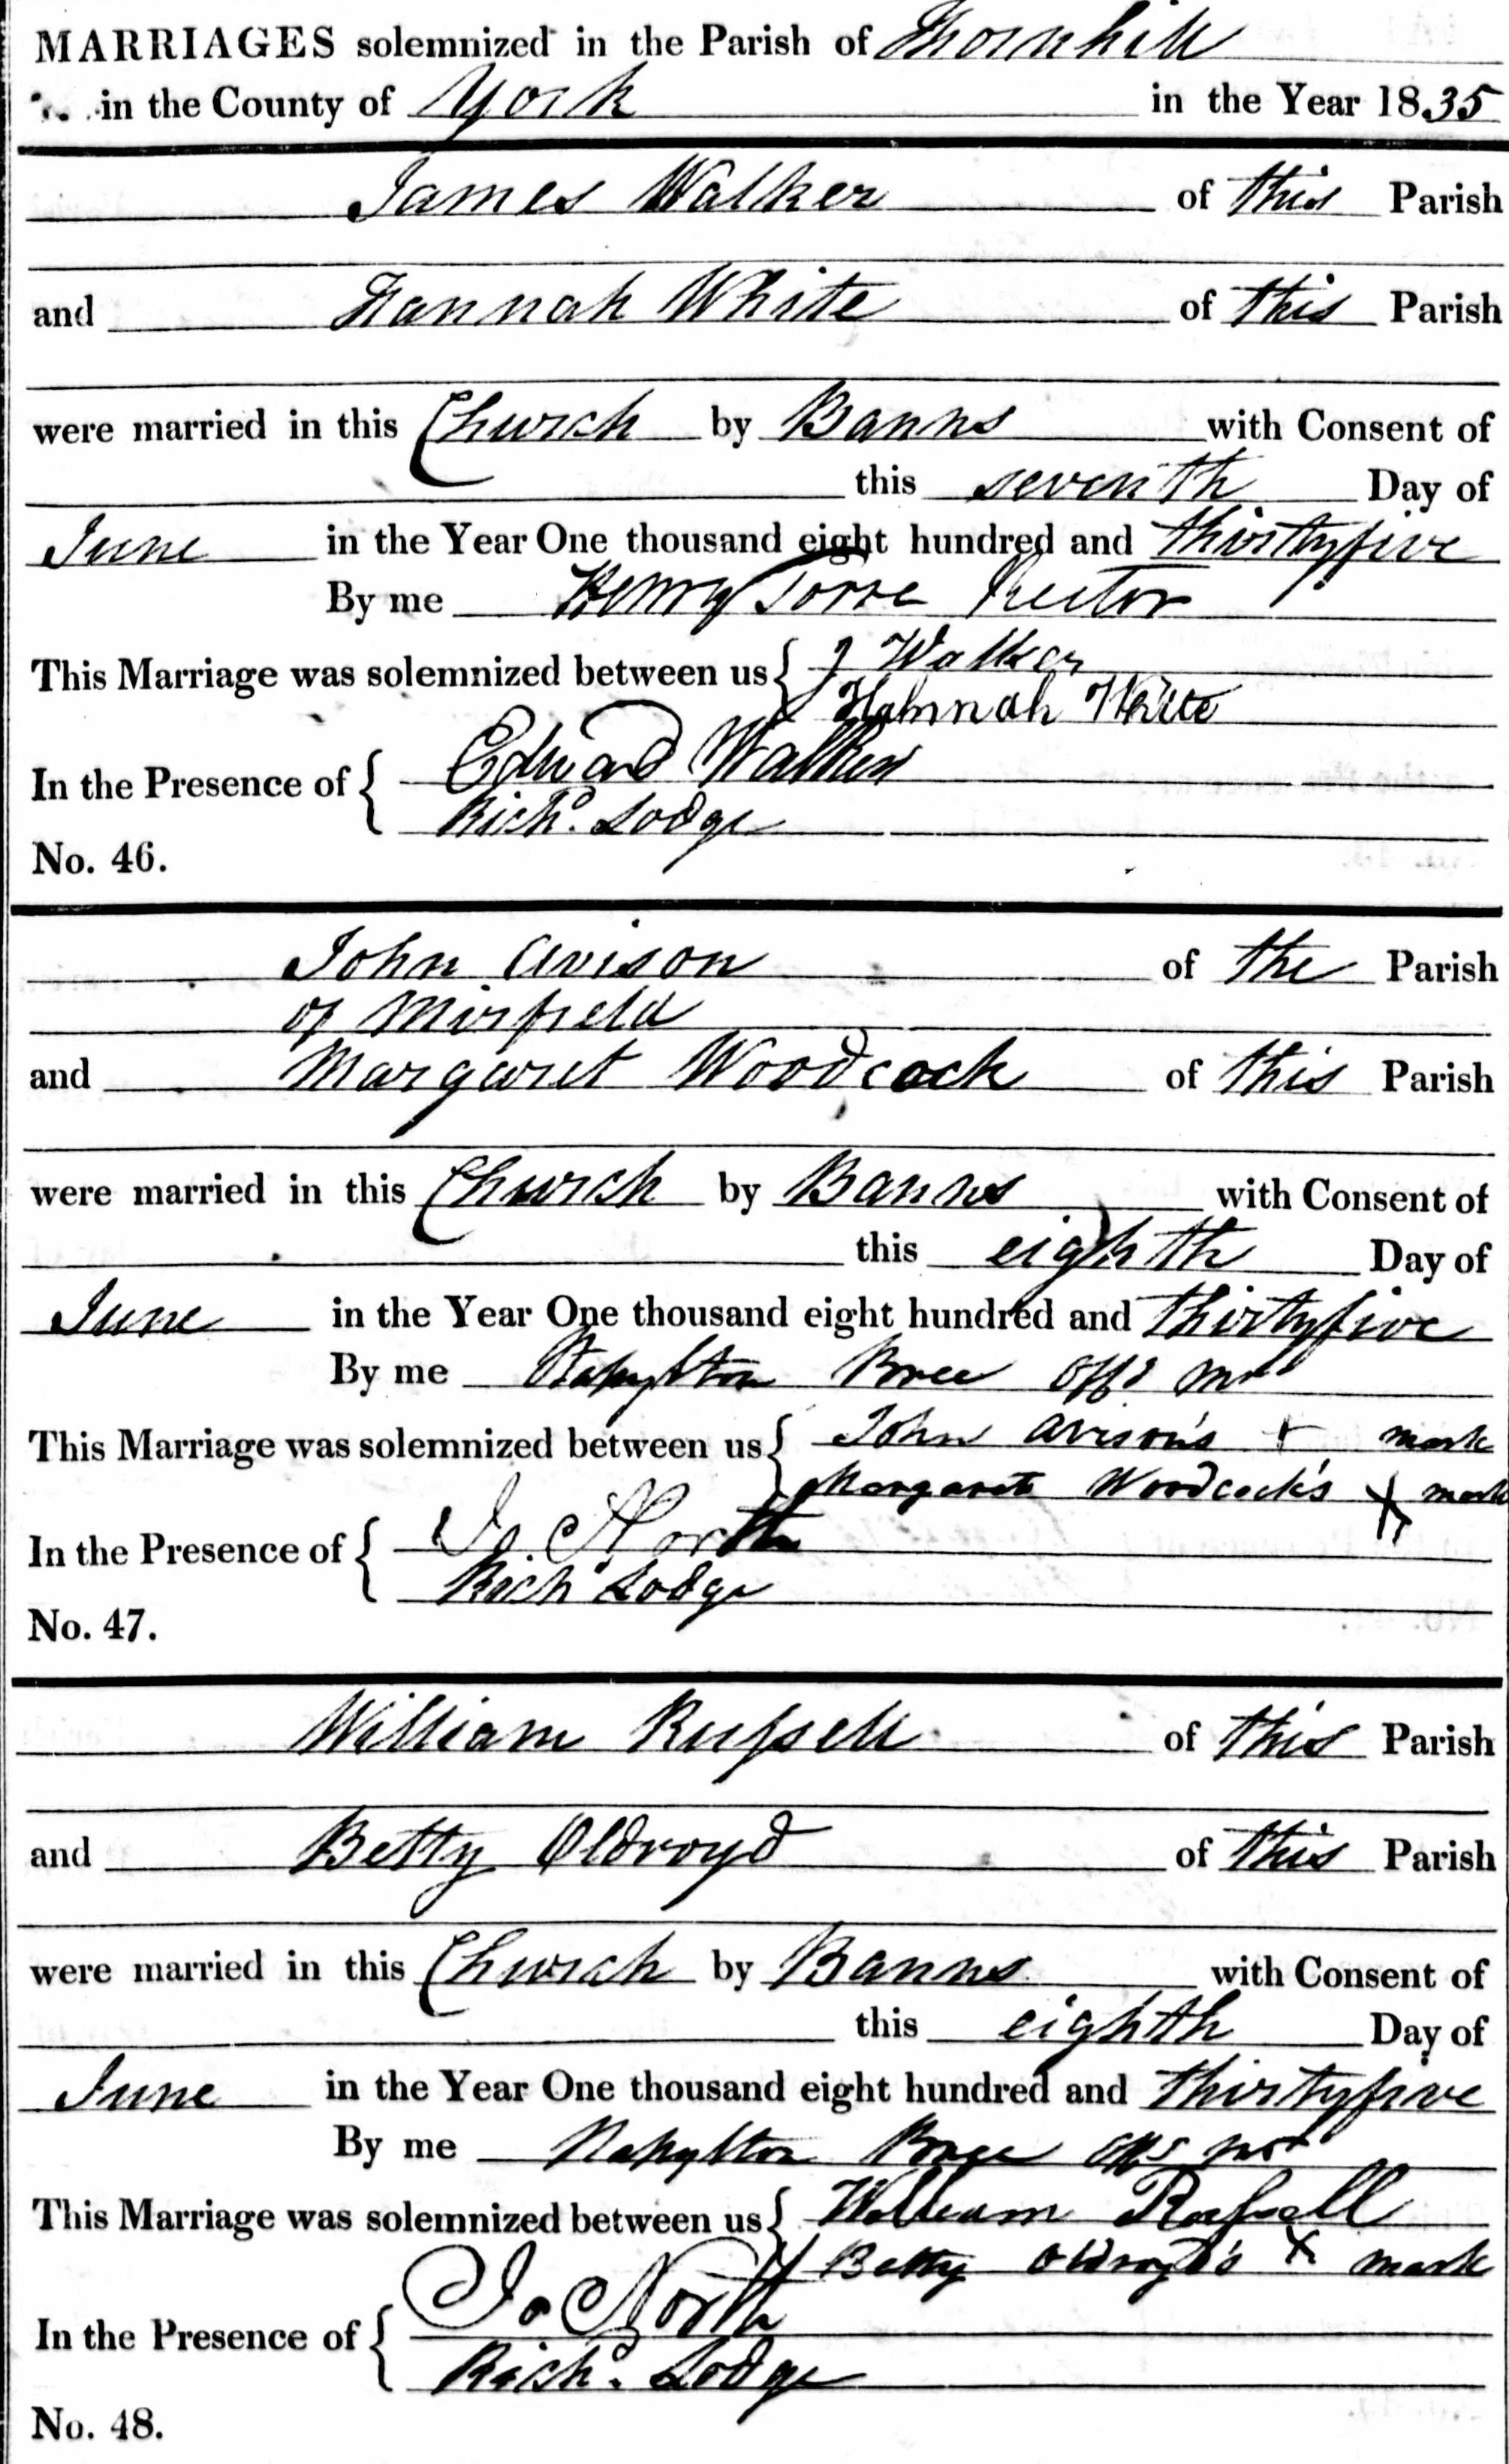 MARRIAGES solemnized in the Parish of Thornhill
in the County of York in the Year 1835
James Walker of this Parish
and Hannah White of this Parish
were married in this Church by Banns with Consent of
this seventh Day of
June in the Year One thousand eight hundred and thirtyfive
By me Henry Torre Rector
This Marriage was solemnized between us { J Walker
Hahnnah White
In the Presence of { Edward Walker
Richd. Lodge
No. 46.
John Avison of the Parish
of Mirfield
and Margaret Woodcock of this Parish
were married in this Church by Banns with Consent of
this eighth Day of
June in the Year One thousand eight hundred and thirtyfive
By me Bree Offg Mr
This Marriage was solemnized between us { John Avison's + mark
Margaret Woodcock's X mark
In the Presence of { Jo North
Richd Lodge
No. 47.
William Russell of this Parish
and Betty Oldroyd of this Parish
were married in this Church by Banns with Consent of
this eighth Day of
June in the Year One thousand eight hundred and thirtyfive
By me Bree Offg Mr
This Marriage was solemnized between us { William Russell
Betty Oldroyd's X mark
In the Presence of { Jo North
Richd. Lodge
No. 48.